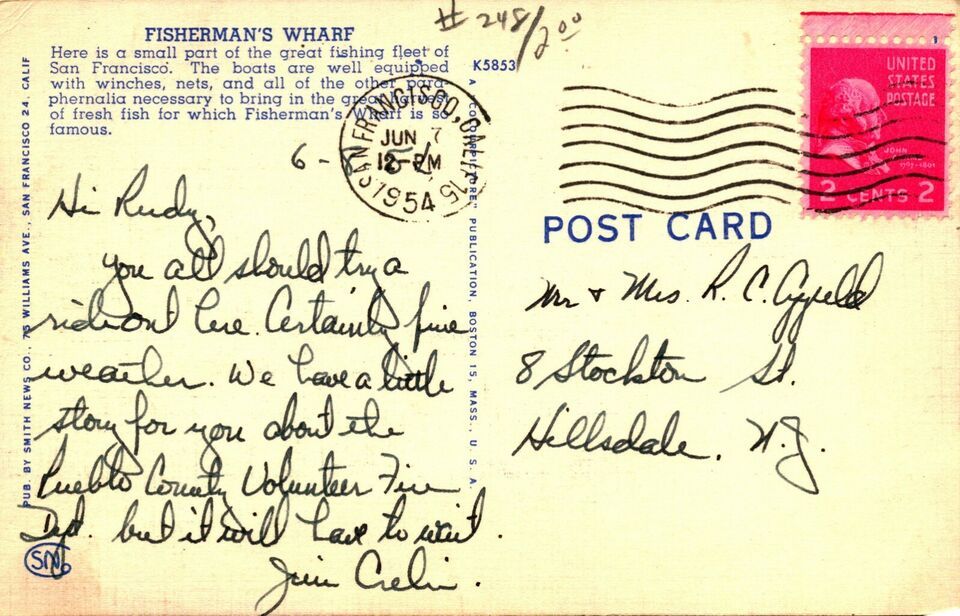 # 248/2.00
FISHERMAN'S WHARF
Here is a small part of the great fishing fleet of
San Francisco. The boats are well equipped
with winches, nets, and all of the other para-
phernalia necessary to bring in the great harvest
of fresh fish for which Fisherman's Wharf is so
famous.
K5853
SAN FRANCISCO, CALIF. 15
JUN 7
12-PM
1954
UNITED
STATES
POSTAGE
JOHN
2 CENTS 2
1
POST CARD
6-
Hi Rudy,
you all should try a
ride out here. Certainly fine
weather. We have a little
story for you about the
Pueblo County Volunteer Fire
Dept. but it will have to wait.
Jim
Mr & Mrs. R. C.
8 Stockton St.
Hillsdale. N.J.
PUB. BY SMITH NEWS CO., 75 WILLIAMS AVE., SAN FRANCISCO 24, CALIF
PUBLICATION, BOSTON 15, MASS., U. S. A.